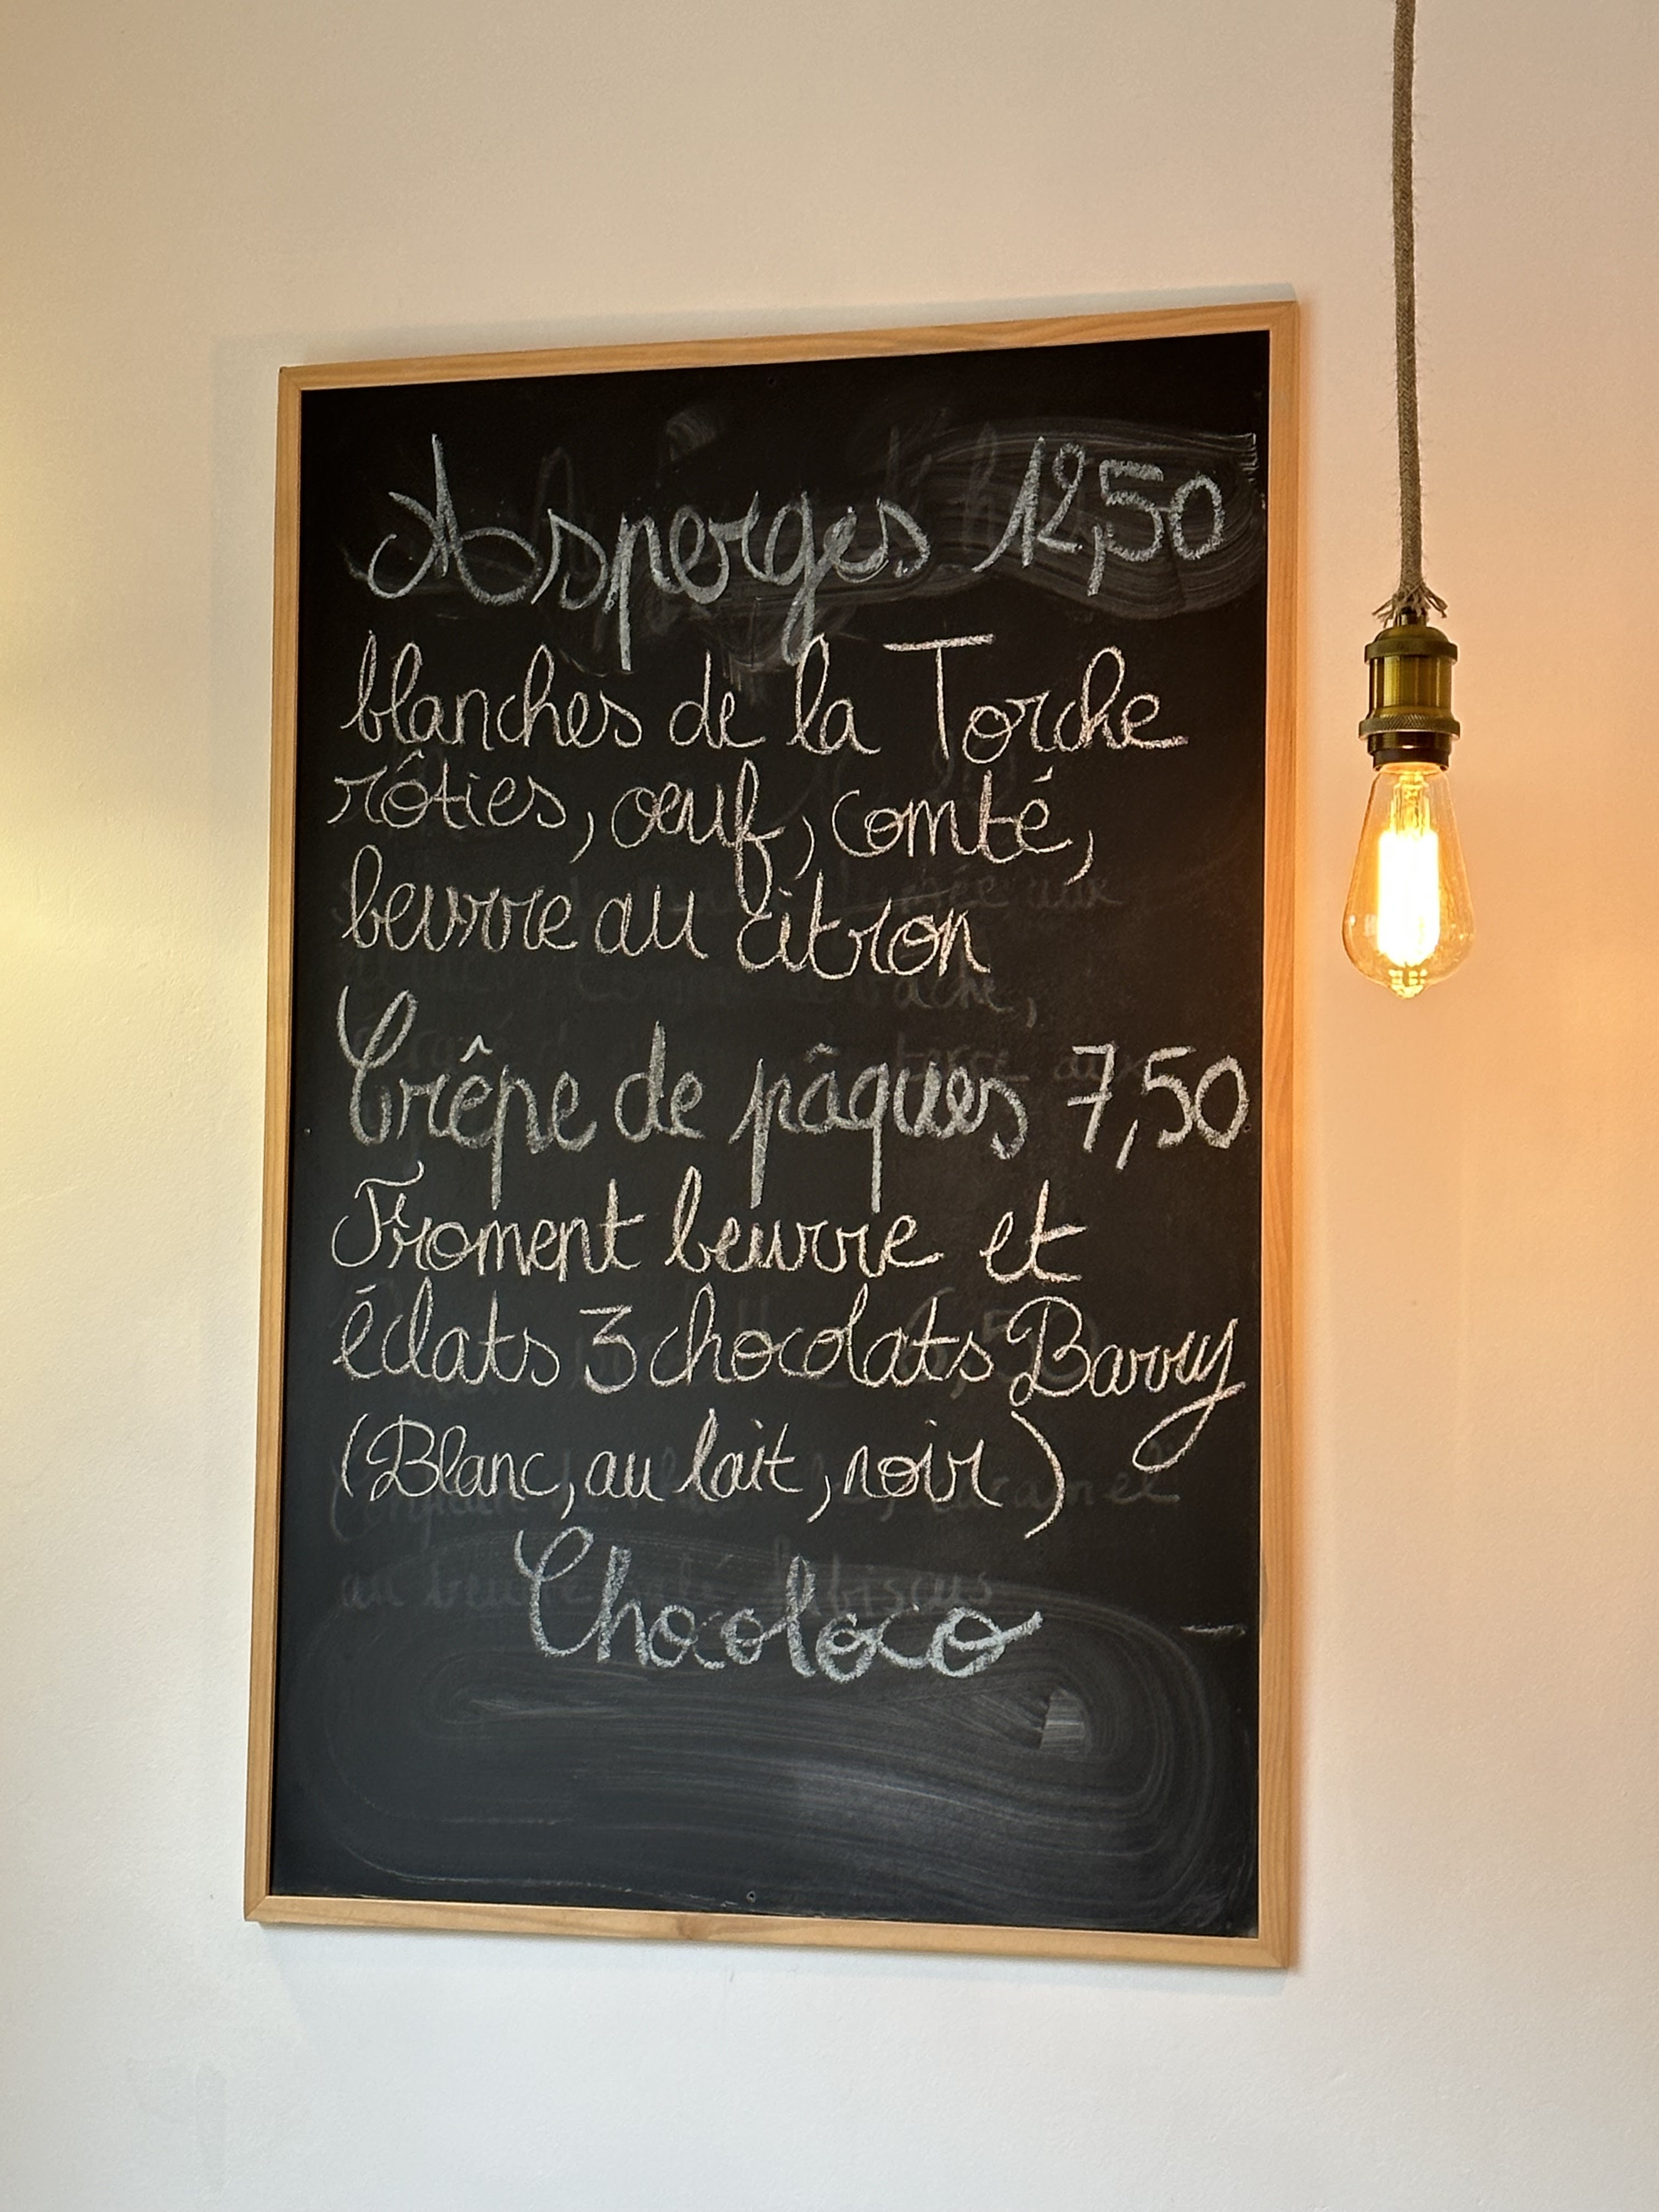 Asperges 12,50
blanches de la Torche
rôties, oeuf, comté,
beurre au citron
Crêpe de pâques 7,50
Froment beurre et
éclats 3 chocolats Barry
(Blanc, au lait, noir)
Chocoloco